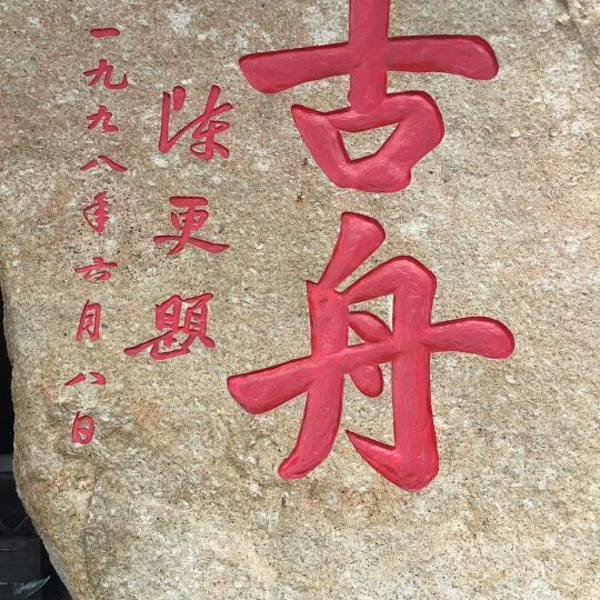 古舟
陈更题
一九九八年六月八日